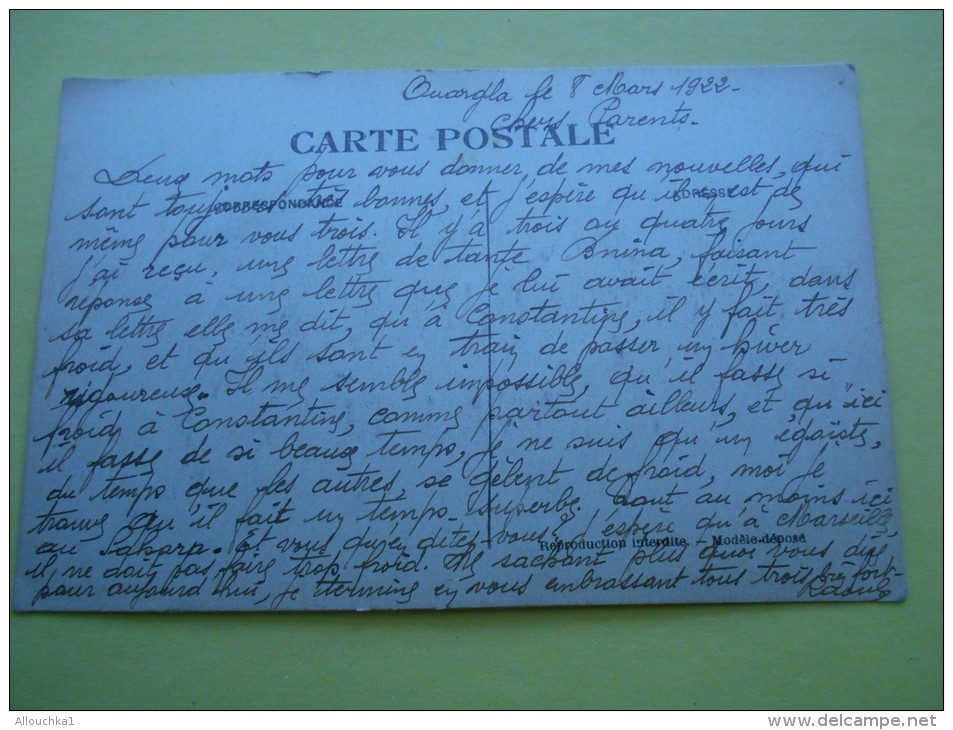 Ouargla le 8 Mars 1922-
Chers Parents.
CARTE POSTALE
Deux mots pour vous donner, de mes nouvelles, qui
CORRESPONDANCE
ADRESSE
sont toujours très bonnes, et j'espère qu'il en est de
même pour vous trois. Il y'a trois ou quatre jours
j'ai reçu, une lettre de tante Bnina, faisant
réponse à une lettre que je lui avait écrite, dans
sa lettre elle me dit, qu'à Constantine, il y fait très
froid, et qu'ils sont en train de passer un hiver
rigoureux. Il me semble impossible, qu'il fasse si
froid à Constantine, comme partout ailleurs, et qu'ici
il fasse de si beaux temps, je ne suis qu'un égoïste,
du temps que les autres, se gèlent de froid, moi je
trouve qu'il fait un temps superbe. Tout au moins ici
au Sahara. Et vous qu'en dites-vous? J'espère qu'à Marseille,
Reproduction interdite. - Modèle déposé
il ne doit pas faire trop froid. Ne sachant plus quoi vous dire
pour aujourd'hui, je termine en vous embrassant tous trois très fort-
Raoul
Allouchka1
http://www.delcampe.net